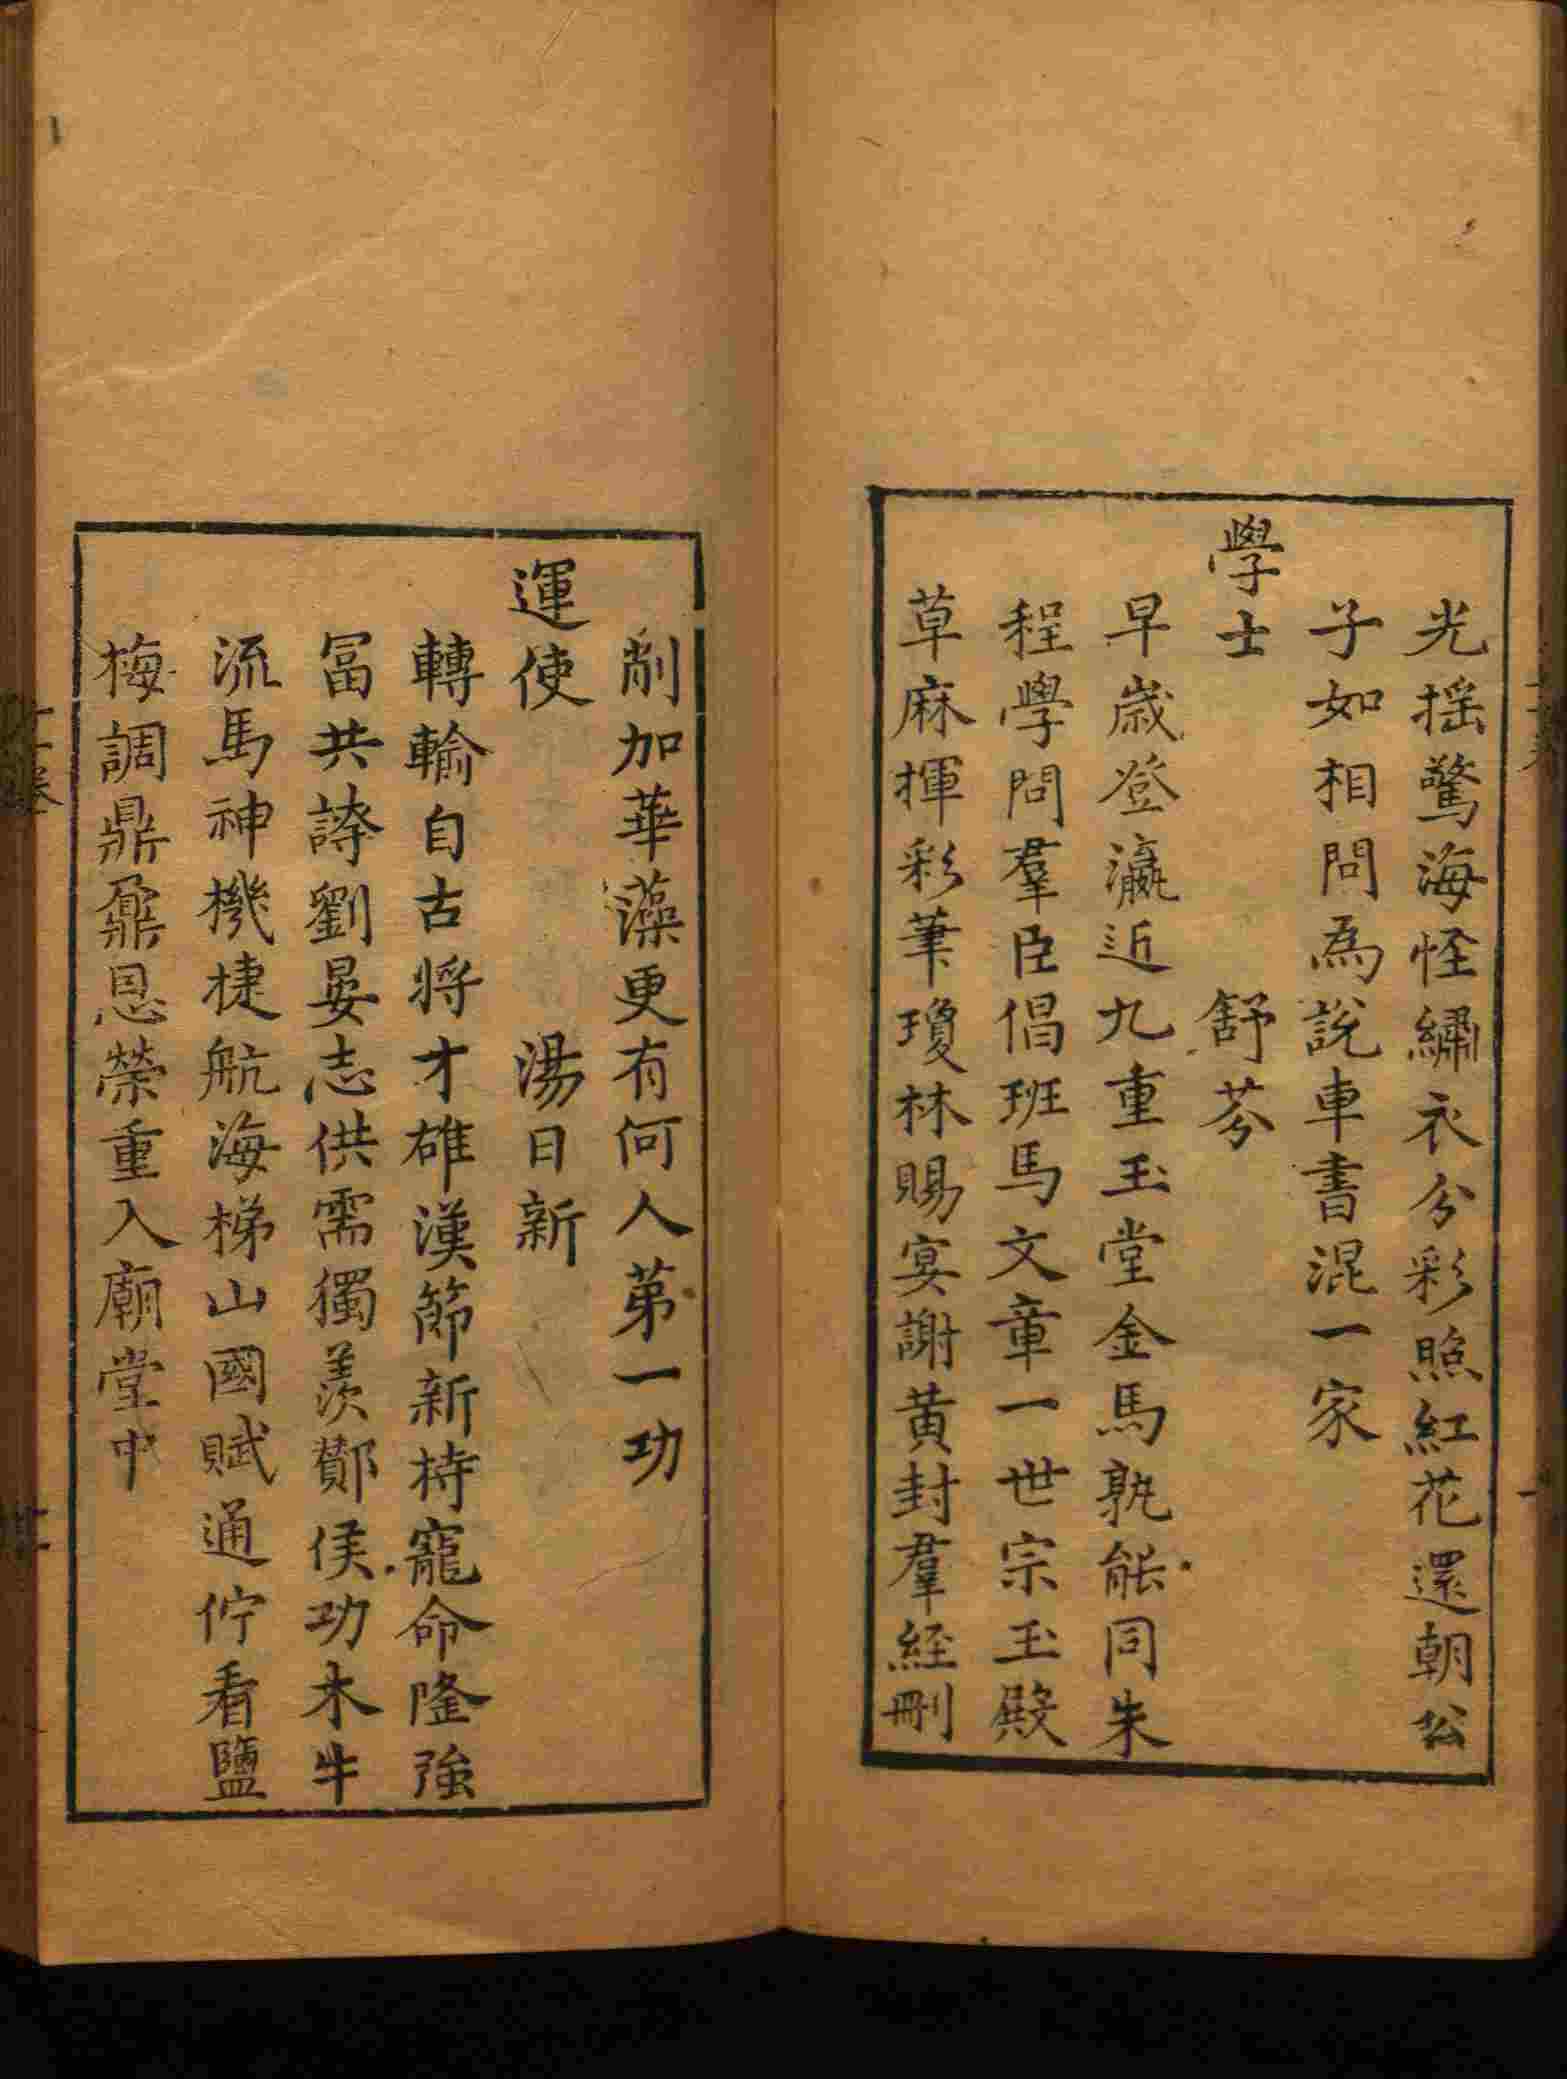 光揺驚海怪繡衣分彩照紅花還朝公
子如相問為說車書混一家
學士　舒芬
早歲登瀛近九重玉堂金馬孰能同朱
程學問羣臣倡班馬文章一世宗玉殿
草麻揮彩筆瓊林賜宴謝黃封羣経刪
削加華藻更有何人苐一功
運使　湯日新
轉輸自古將才雄漢節新持寵命隆強
冨共誇劉晏志供需獨羨酇侯功木牛
流馬神機捷航海梯山國賦通佇看鹽
梅調鼎鼐恩榮重入廟堂中